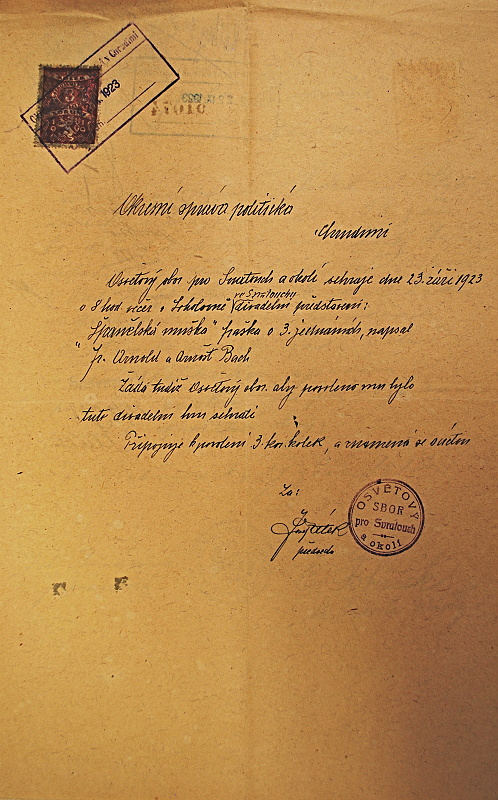 v Chrudimi
1923
3
Okresní správa politická
Chrudimi
Osvětový sbor pro Svratouch a okolí sehraje dne 23. září 1923
ve Svratouchu
o 8 hod. večer v Sokolovně divadelní představení:
"Španělská muška" fraška o 3. jednáních, napsal
Fr. Arnold a Arnošt Bach
Žádá tudíž Osvětový sbor. aby povoleno mu bylo
tuto divadelní hru sehráti
Připojuje k povolení 3. kor. kolek, a znamená se v úctou
Za:
předseda
OSVĚTOVÝ
SBOR
pro Svratouch
a okolí